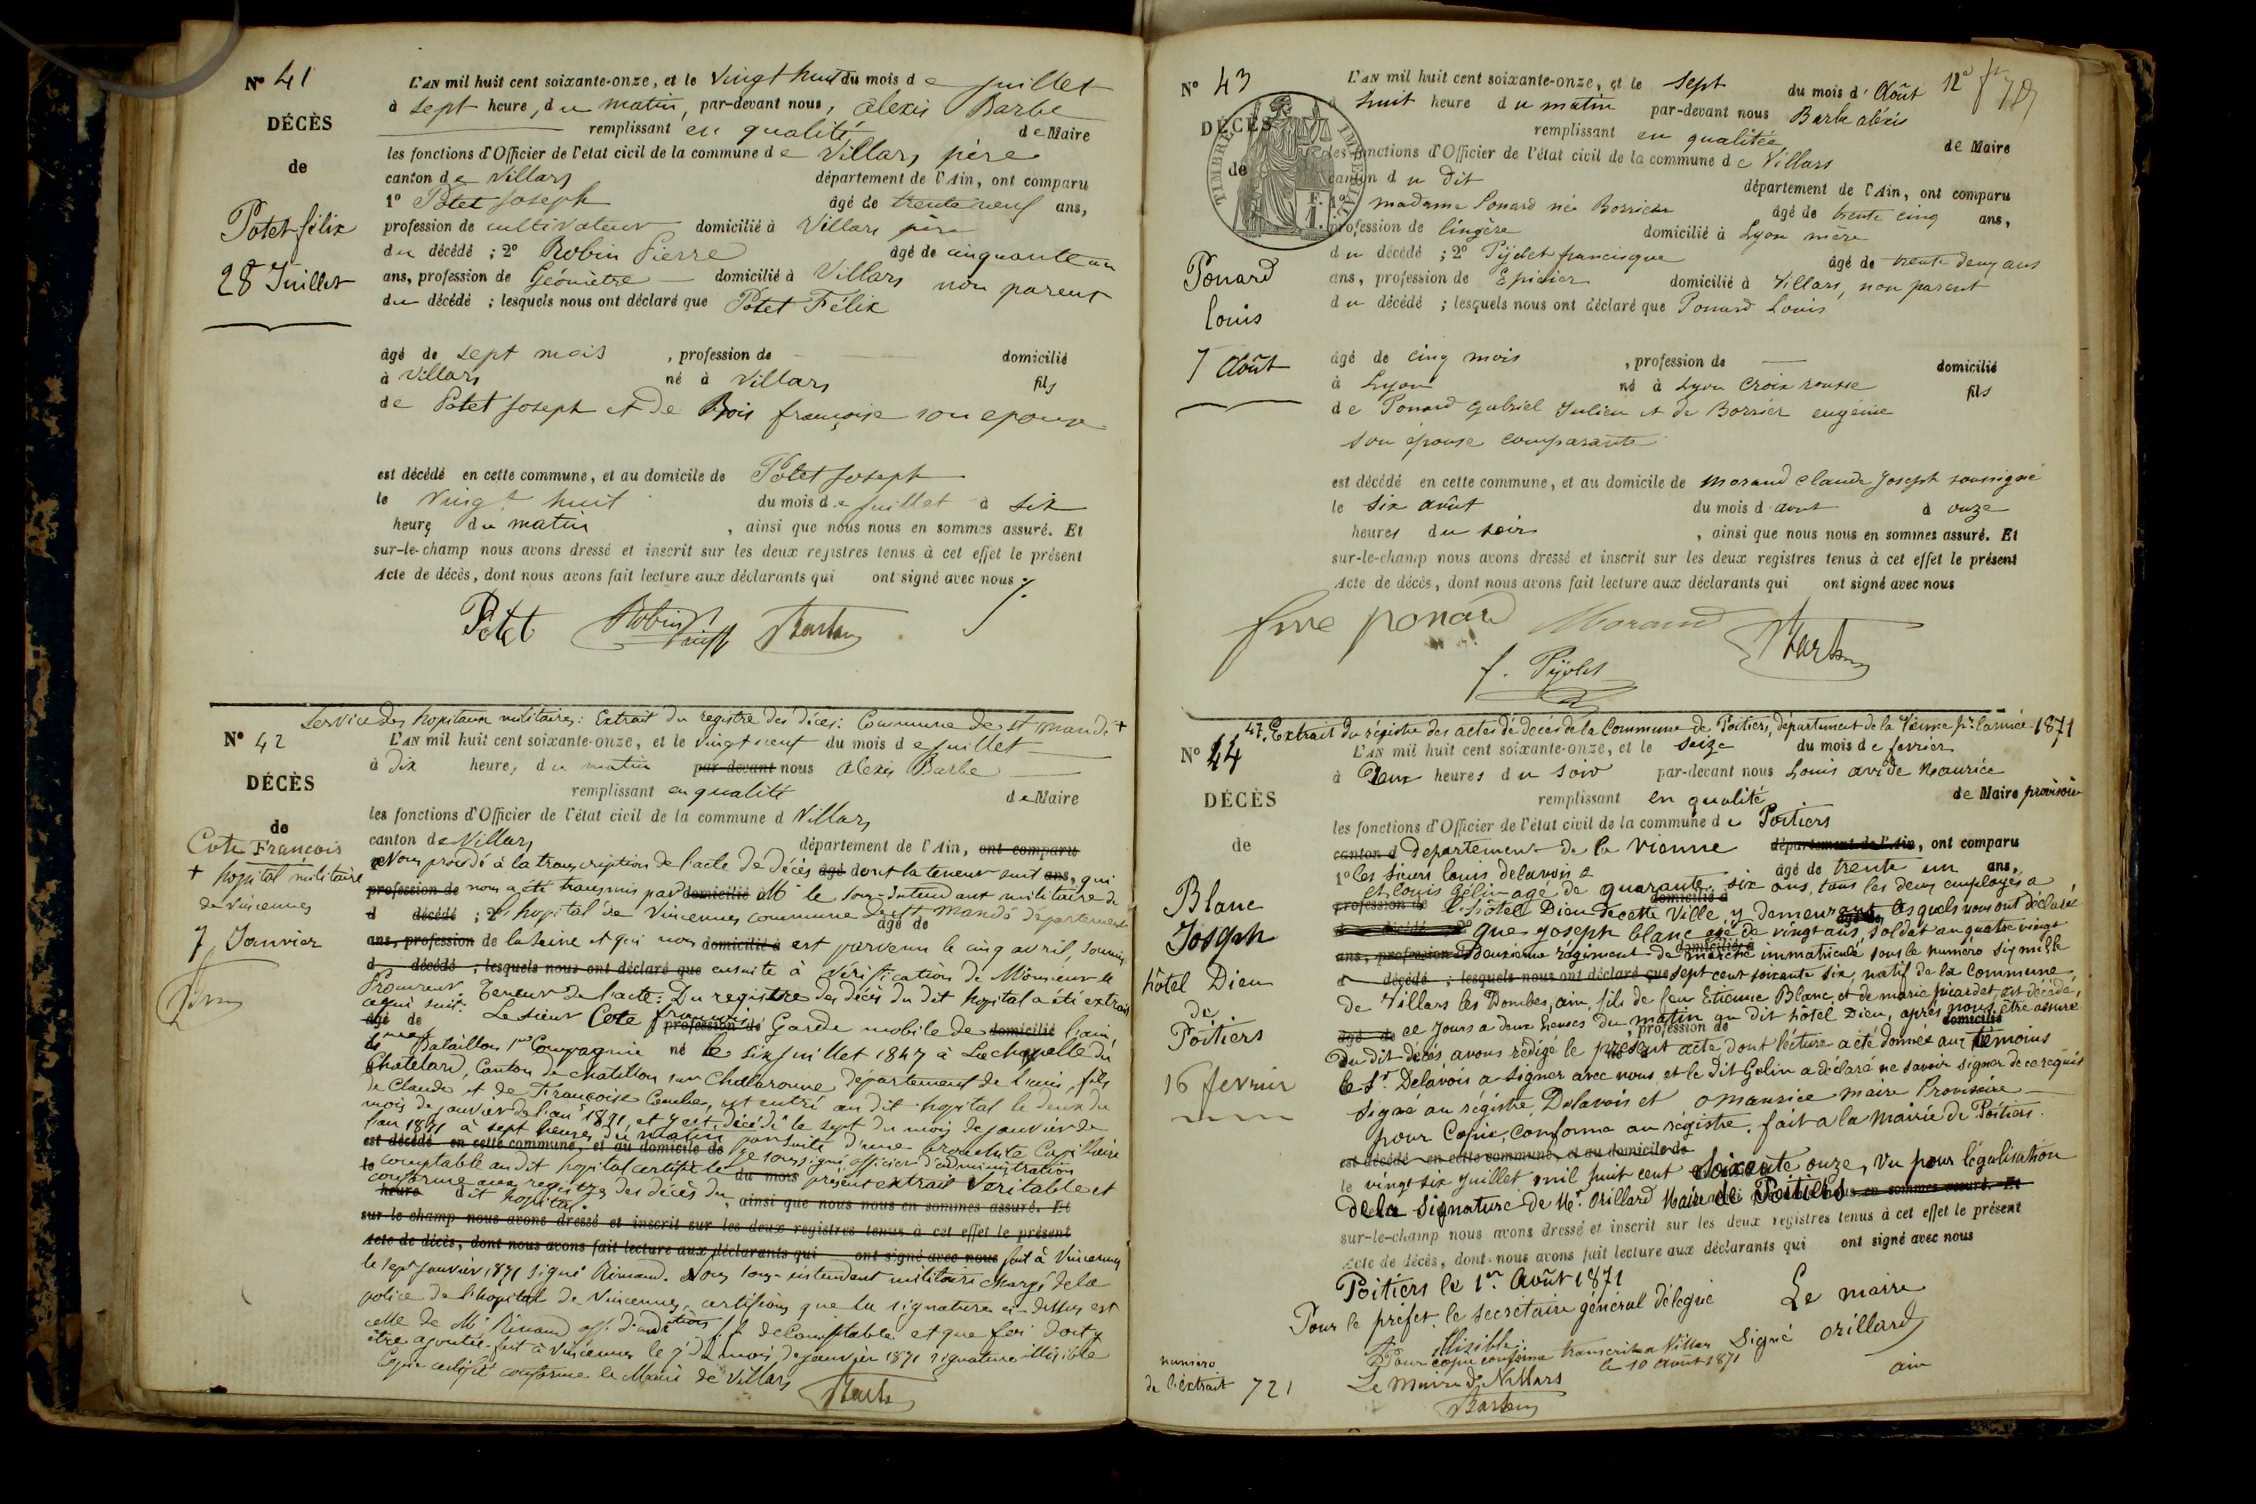 N° 41
DÉCÈS
de
Potet félix
28 Juillet
L'AN mil huit cent soixante-onze, et le vingt huit du mois de juillet
à sept heure, du matin, par-devant nous, alexis Barbe
remplissant en qualité de Maire
les fonctions d'Officier de l'état civil de la commune de Villars
canton de Villars département de l'Ain, ont comparu
1° Potet Joseph âgé de trente neuf ans,
profession de cultivateur domicilié à Villars père
du décédé ; 2° Robin Pierre âgé de cinquante un
ans, profession de Géomètre domicilié à Villars non parent
du décédé ; lesquels nous ont déclaré que Potet Félix
âgé de sept mois , profession de domicilié
à Villars né à Villars fils
de Potet Joseph et de Bois françoise son epouse
est décédé en cette commune, et au domicile de Potet Joseph
le vingt huit du mois de juillet à six
heures du matin , ainsi que nous nous en sommes assuré. Et
sur-le-champ nous avons dressé et inscrit sur les deux registres tenus à cet effet le présent
Acte de décès, dont nous avons fait lecture aux déclarants qui ont signé avec nous
Potet Robin Barbe
Service des hopitaux militaires: Extrait du registre des décès: Commune de St mandé +
N° 42
DÉCÈS
de
Cote Francois
+ hopital militaire
de Vincennes
7 Janvier
L'AN mil huit cent soixante-onze, et le vingt neuf du mois de juillet
à dix heure, du matin par-devant nous alexis Barbe
remplissant en qualité de Maire
les fonctions d'Officier de l'état civil de la commune d Villars
canton de Villars département de l'Ain, ont comparu
Nous procédé à la transcription de l'acte de décès âgé dont la teneur suit ans, qui
profession de nous a été transmis par domicilié Mr le sous-Intendant militaire de
d décédé ; 2° l'hopital de Vincennes commune de St Mandé département
âgé de
ans, profession de la Seine et qui nous domicilié à est parvenu le cinq avril, soumis
d décédé ; lesquels nous ont déclaré que ensuite à vérification de Monsieur le
Procureur Teneur de l'acte: Du registre des décès du dit hopital a été extrait
ce qui suit: Le sieur Cote françois
âgé de profession de Garde mobile de domicilié l'ain,
Bataillon 1re Compagnie né le six juillet 1847 à La chapelle du
Chatelard, Canton de chatillon sur Chalaronne département de l'ain, fils
de Claude et de Françoise Combe, est entré au dit hopital le deux du
mois de janvier de l'an 1871, et y est décédé le sept du mois de janvier de
l'an 1871 à sept heures du matin par suite d'une bronchite Capillaire
est décédé en cette commune, et au domicile de Je soussigné, officier d'administration
le comptable au dit hopital certifie le du mois présent extrait véritable et
conforme aux registres des décès du
heure dit hopital. , ainsi que nous nous en sommes assuré. Et
sur-le-champ nous avons dressé et inscrit sur les deux registres tenus à cet effet le présent
Acte de décès, dont nous avons fait lecture aux déclarants qui ont signé avec nous fait à Vincennes
le sept Janvier 1871 signé Rinaud. Nous sous-intendant militaire chargé de la
police de l'hopital de Vincennes, certifions que la signature ci-dessus est
celle de Mr Rinaud off. d'administration comptable et que foi doit y
être ajoutée. fait à Vincennes le 7 du mois de janvier 1871 signature illisible
Copie certifiée conforme le Maire de Villars
Barbe
N° 43
DÉCÈS
de
TIMBRE IMPÉRIAL
Ponard
louis
7 Août
L'AN mil huit cent soixante-onze, et le sept du mois d'Août
à huit heure du matin par-devant nous Barbe aléxis
remplissant en qualitée de Maire
les fonctions d'Officier de l'état civil de la commune de Villars
canton du dit département de l'Ain, ont comparu
1° madame Ponard née Borrier âgé de trente cinq ans,
profession de lingère domicilié à Lyon mère
du décédé ; 2° Pijolet francisque âgé de trente deux ans
ans, profession de Epicier domicilié à Villars, non parent
du décédé ; lesquels nous ont déclaré que Ponard Louis
âgé de cinq mois , profession de domicilié
à Lyon né à Lyon Croix rousse fils
de Ponard gabriel Julien et de Borrier eugénie
son épouse comparante
est décédé en cette commune, et au domicile de Morand Claude Joseph soussigné
le six août du mois d'aout à onze
heures du soir , ainsi que nous nous en sommes assuré. Et
sur-le-champ nous avons dressé et inscrit sur les deux registres tenus à cet effet le présent
Acte de décès, dont nous avons fait lecture aux déclarants qui ont signé avec nous
fme ponard Morand Barbe
f. Pijolet
42. Extrait du régistre des actes de décès de la Commune de Poitiers, département de la Vienne pr. l'année 1871
N° 44
DÉCÈS
de
Blanc
Joseph
hôtel Dieu
de
Poitiers
16 fevrier
L'AN mil huit cent soixante-onze, et le seize du mois de fevrier
à Deux heures du soir par-devant nous Louis avide Maurice
remplissant en qualité de Maire provisoire
les fonctions d'Officier de l'état civil de la commune de Poitiers
canton d département de la Vienne département de l'Ain, ont comparu
1° les sieurs louis delavois âgé de trente un ans,
et louis Gélin agé de quarante six ans, tous les deux employés à
profession de l'hôtel Dieu de cette Ville, y demeurant, lesquels nous ont déclaré
domicilié à
que Joseph blanc agé de vingt ans, soldat au quatre vingt
ans, profession Deuxième régiment de marche immatriculé sous le numéro six mille
d décédé ; lesquels nous ont déclaré que sept cent soixante six, natif de la Commune
de Villars les Dombes, ain, fils de feu Etienne Blanc, et de marie picardet, est décédé,
âgé de ce jours a deux heures du matin au dit hôtel Dieu, après nous être assuré
, profession de domicilié
du dit décès avons rédigé le présent acte dont lécture a été donnée aux témoins
le Sr Delavois a signer avec nous et le dit Gélin a déclaré ne savoir signer de ce requis
signé au régistre, Delavois et O Maurice maire Provisoire
pour Copie, conforme au régistre. fait a la Mairie de Poitiers.
est décédé en cette commune, et au domicile de
le vingt six juillet mil huit cent soixante onze, Vu pour légalisation
de la signature de Mr. Orillard Maire de Poitiers en sommes assuré. Et
sur-le-champ nous avons dressé et inscrit sur les deux registres tenus à cet effet le présent
Acte de décès, dont nous avons fait lecture aux déclarants qui ont signé avec nous
Poitiers le 1er Août 1871
Pour le préfet, le secrétaire général délégué Le maire
Illisible. signé Orillard
Pour copie conforme transcrit a Villars ain
le 10 août 1871
Le maire de Villars
Barbe
numéro
de l'éxtrait 721